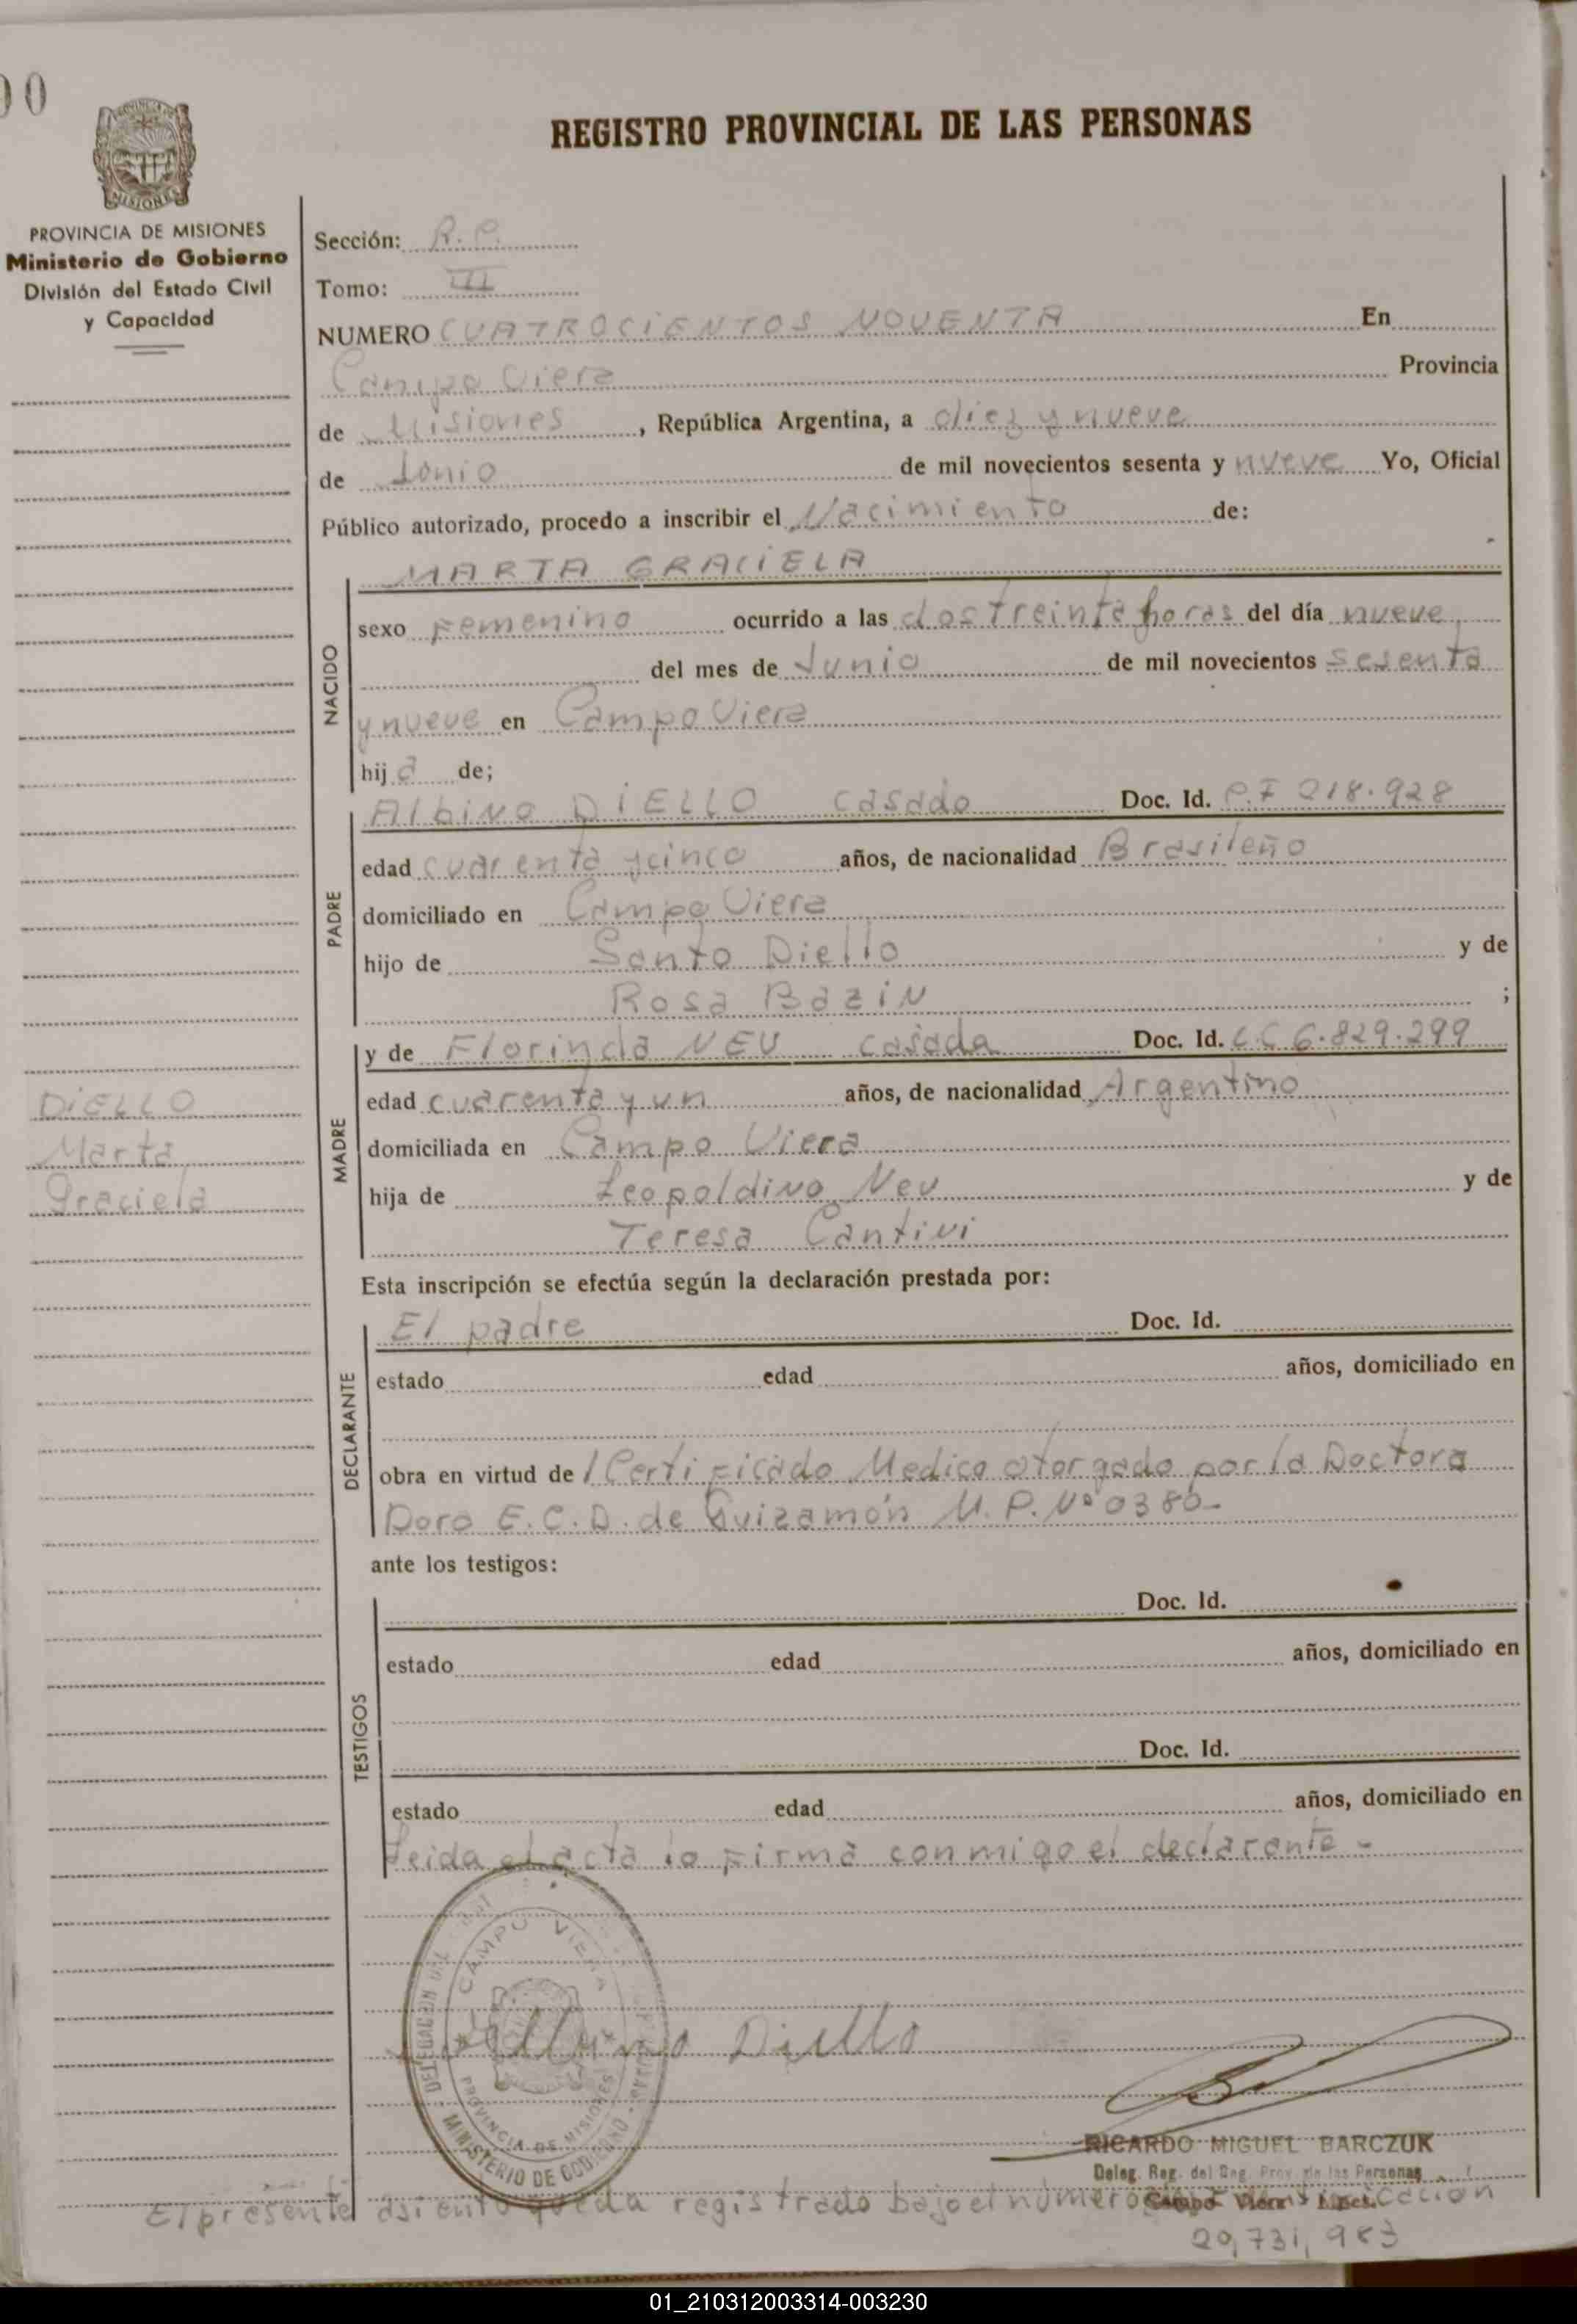 00
REGISTRO PROVINCIAL DE LAS PERSONAS
MISIONES
PROVINCIA DE MISIONES
Ministerio de Gobierno
División del Estado Civil
y Capacidad
Sección: R.P.
Tomo: III
NUMERO CUATROCIENTOS NOVENTA En
Campo Viera Provincia
de Misiones, República Argentina, a diez y nueve
de Junio de mil novecientos sesenta y nueve Yo, Oficial
Público autorizado, procedo a inscribir el Nacimiento de:
NACIDO
MARTA GRACIELA
sexo Femenino ocurrido a las dos treinta horas del día nueve
del mes de Junio de mil novecientos sesenta
y nueve en Campo Viera
hija de;
PADRE
Albino DIELLO casado Doc. Id. P.F 218.928
edad cuarenta y cinco años, de nacionalidad Brasileño
domiciliado en Campo Viera
hijo de Santo Diello y de
Rosa Bazin ;
MADRE
y de Florinda NEU casada Doc. Id. LC 6.829.299
edad cuarenta y un años, de nacionalidad Argentino
domiciliada en Campo Viera
hija de Leopoldino Neu y de
Teresa Cantini
DIELLO
Marta
Graciela
Esta inscripción se efectúa según la declaración prestada por:
DECLARANTE
El padre Doc. Id.
estado edad años, domiciliado en
obra en virtud de 1 Certificado Medico otorgado por la Doctora
Dora E.C.D. de Guizamón M.P. Nº 0380-
ante los testigos:
TESTIGOS
Doc. Id.
estado edad años, domiciliado en
Doc. Id.
estado edad años, domiciliado en
Leida el acta la firma conmigo el declarante -
CAMPO VIERA
PROVINCIA DE MISIONES
MINISTERIO DE GOBIERNO
Albino Diello
RICARDO MIGUEL BARCZUK
Deleg. Reg. del Reg. Prov. de las Personas
Campo Viera Mnes.
El presente asiento queda registrado bajo el número
20,731,983
01_210312003314-003230